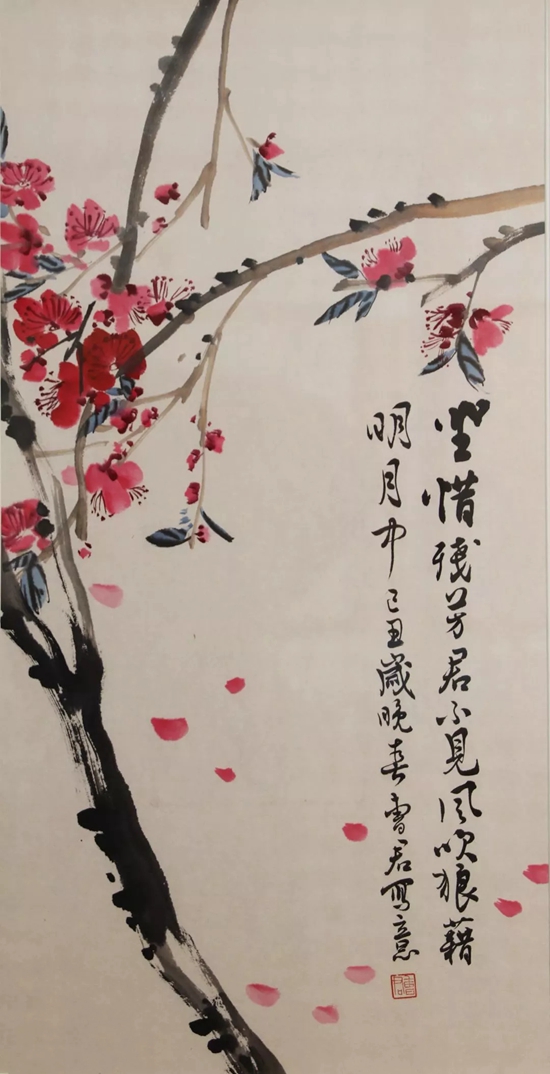 坐惜残芳君不見风吹狼藉
明月中己丑歲晚春君写意